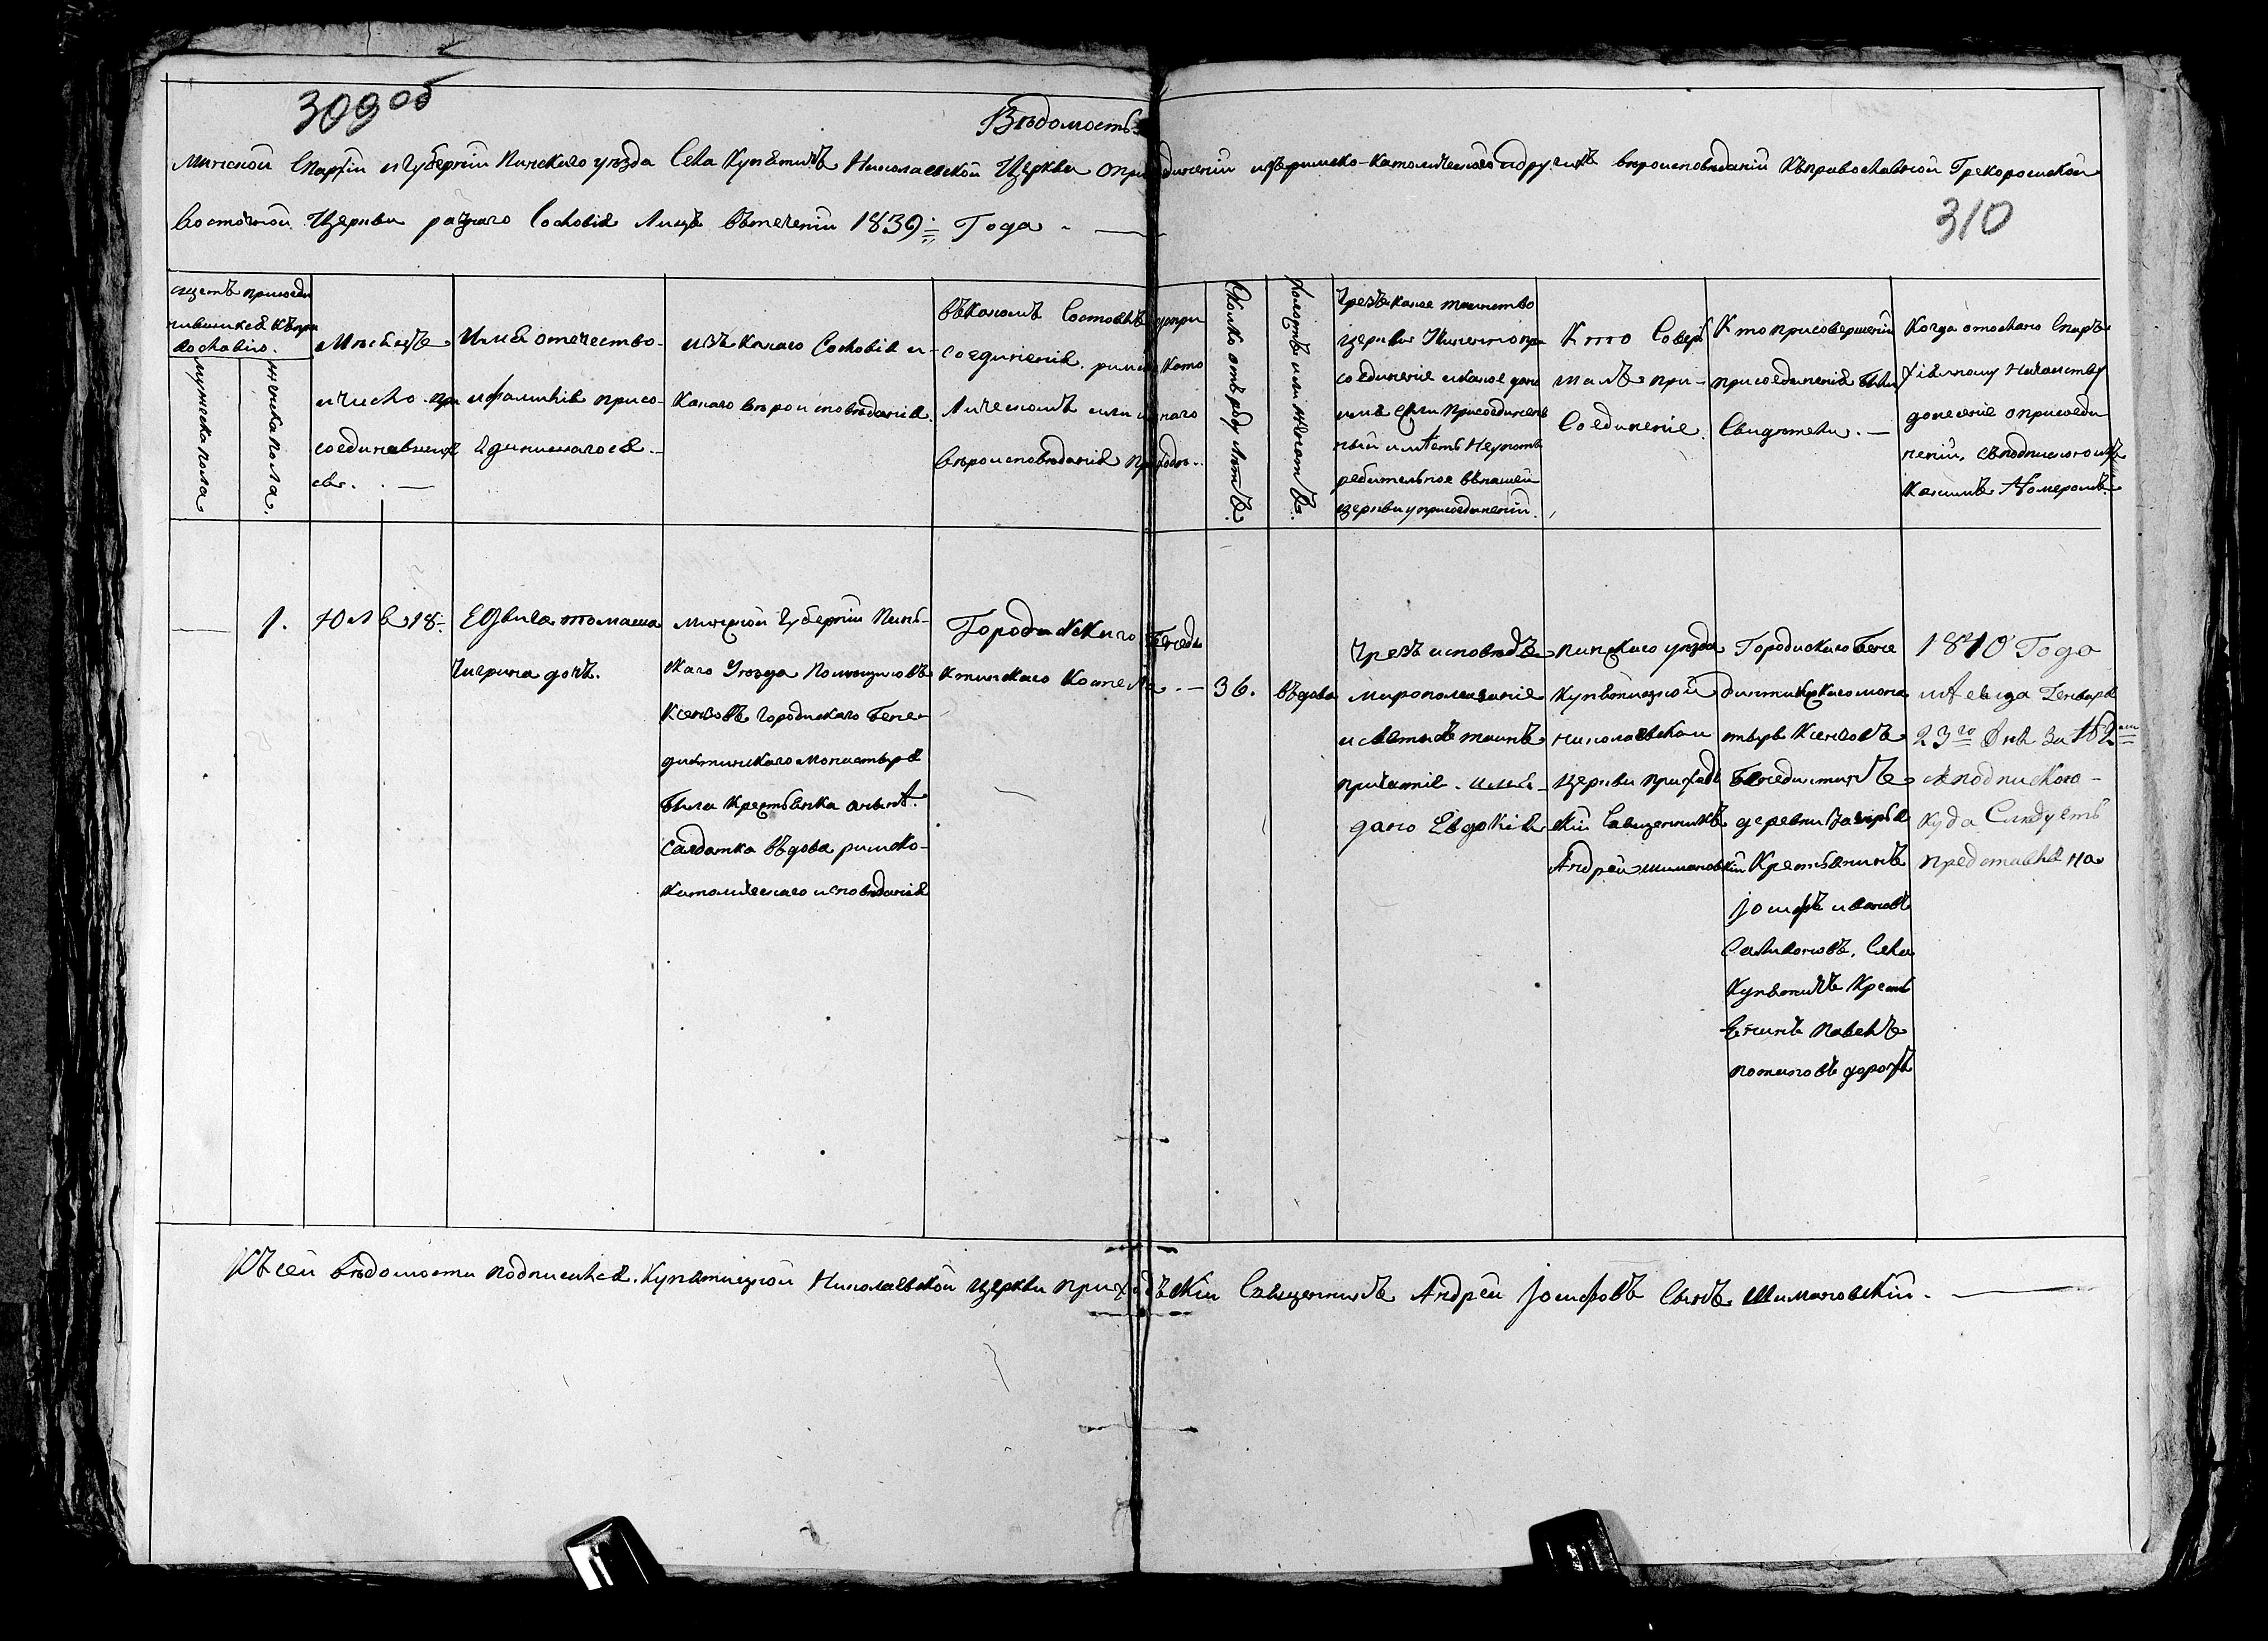 309 об
Вѣдомость
Минской Епархіи и Губерніи Пинскаго уѣзда Села Купятичъ Николаевской Церкви о присоединеніи изъ римско-католическаго и другихъ вѣроисповѣданій къ православной Грекороссійской
310
Восточной Церкви разнаго Сословія Лицъ въ теченіи 1839 Года
счетъ присоеди
нившихся къ пра
вославію.
мужеска пола
женска пола.
Мѣсяцъ
и число при
соединивших
ся.
Имя отечество
и фамилія присо-
единившагося
изъ какаго Сословія и
какаго вѣроисповѣданія.
въ какомъ Состоянъ до при
соединенія римско като
лическомъ или инаго
вѣроисповѣданія приходѣ
Сколко отъ роду лѣтъ.
холостъ или женатъ.
Чрезъ какое таинство
церкви Учинено при
соединеніе и какое дано
имя если Присоединен
ный имѣетъ Неупот
ребительное въ нашей
церкви у присоединеній.
Кто Совер
шалъ при-
Соединеніе.
Кто при совершеніи
присоединенія были
Свидѣтели.
Когда отослано Епар
хіялному Начальству
донесеніе о присоеди
неніи, съ подпискою и за
какимъ Номеромъ.
1.
Юля 18.
Едвига томаша
Чигрина дочь.
Минской Губерніи Пинс-
каго Уѣзда Помѣщиковъ
Ксендзовъ Городискаго Бене-
диктинскаго Монастыря
была крестьянка а нынѣ
Салдатка вдова римско-
католическаго исповѣданія
Городискаго Бенеди
ктинскаго Костела.
36.
въдова
Чрезъ исповѣдь
миропомазаніе
и святыхъ таинъ
причастіе. имя-
дано Евдокія
пинскаго уѣзда
Купятицкой
николаевской
церкви приход
скій Священникъ
Андрей шимановскій
Городискаго Бене
диктинскаго мона
стыря Ксендзовъ
Бенедиктинъ
деревни
Крестьянинъ
Іосифъ ивановъ
Саливоновъ. Села
Купятичъ Крест
янинъ Павелъ
потаповъ дорохъ
1840 Года
мѣсяца Генваря
23го дня За № 2
с подпискою
куда Слѣдуетъ
представлена
Къ сей вѣдомости подписался. Купятицкой Николаевской церкви приходскій Священникъ Андрей Іосифовъ Сынъ Шимановскій.